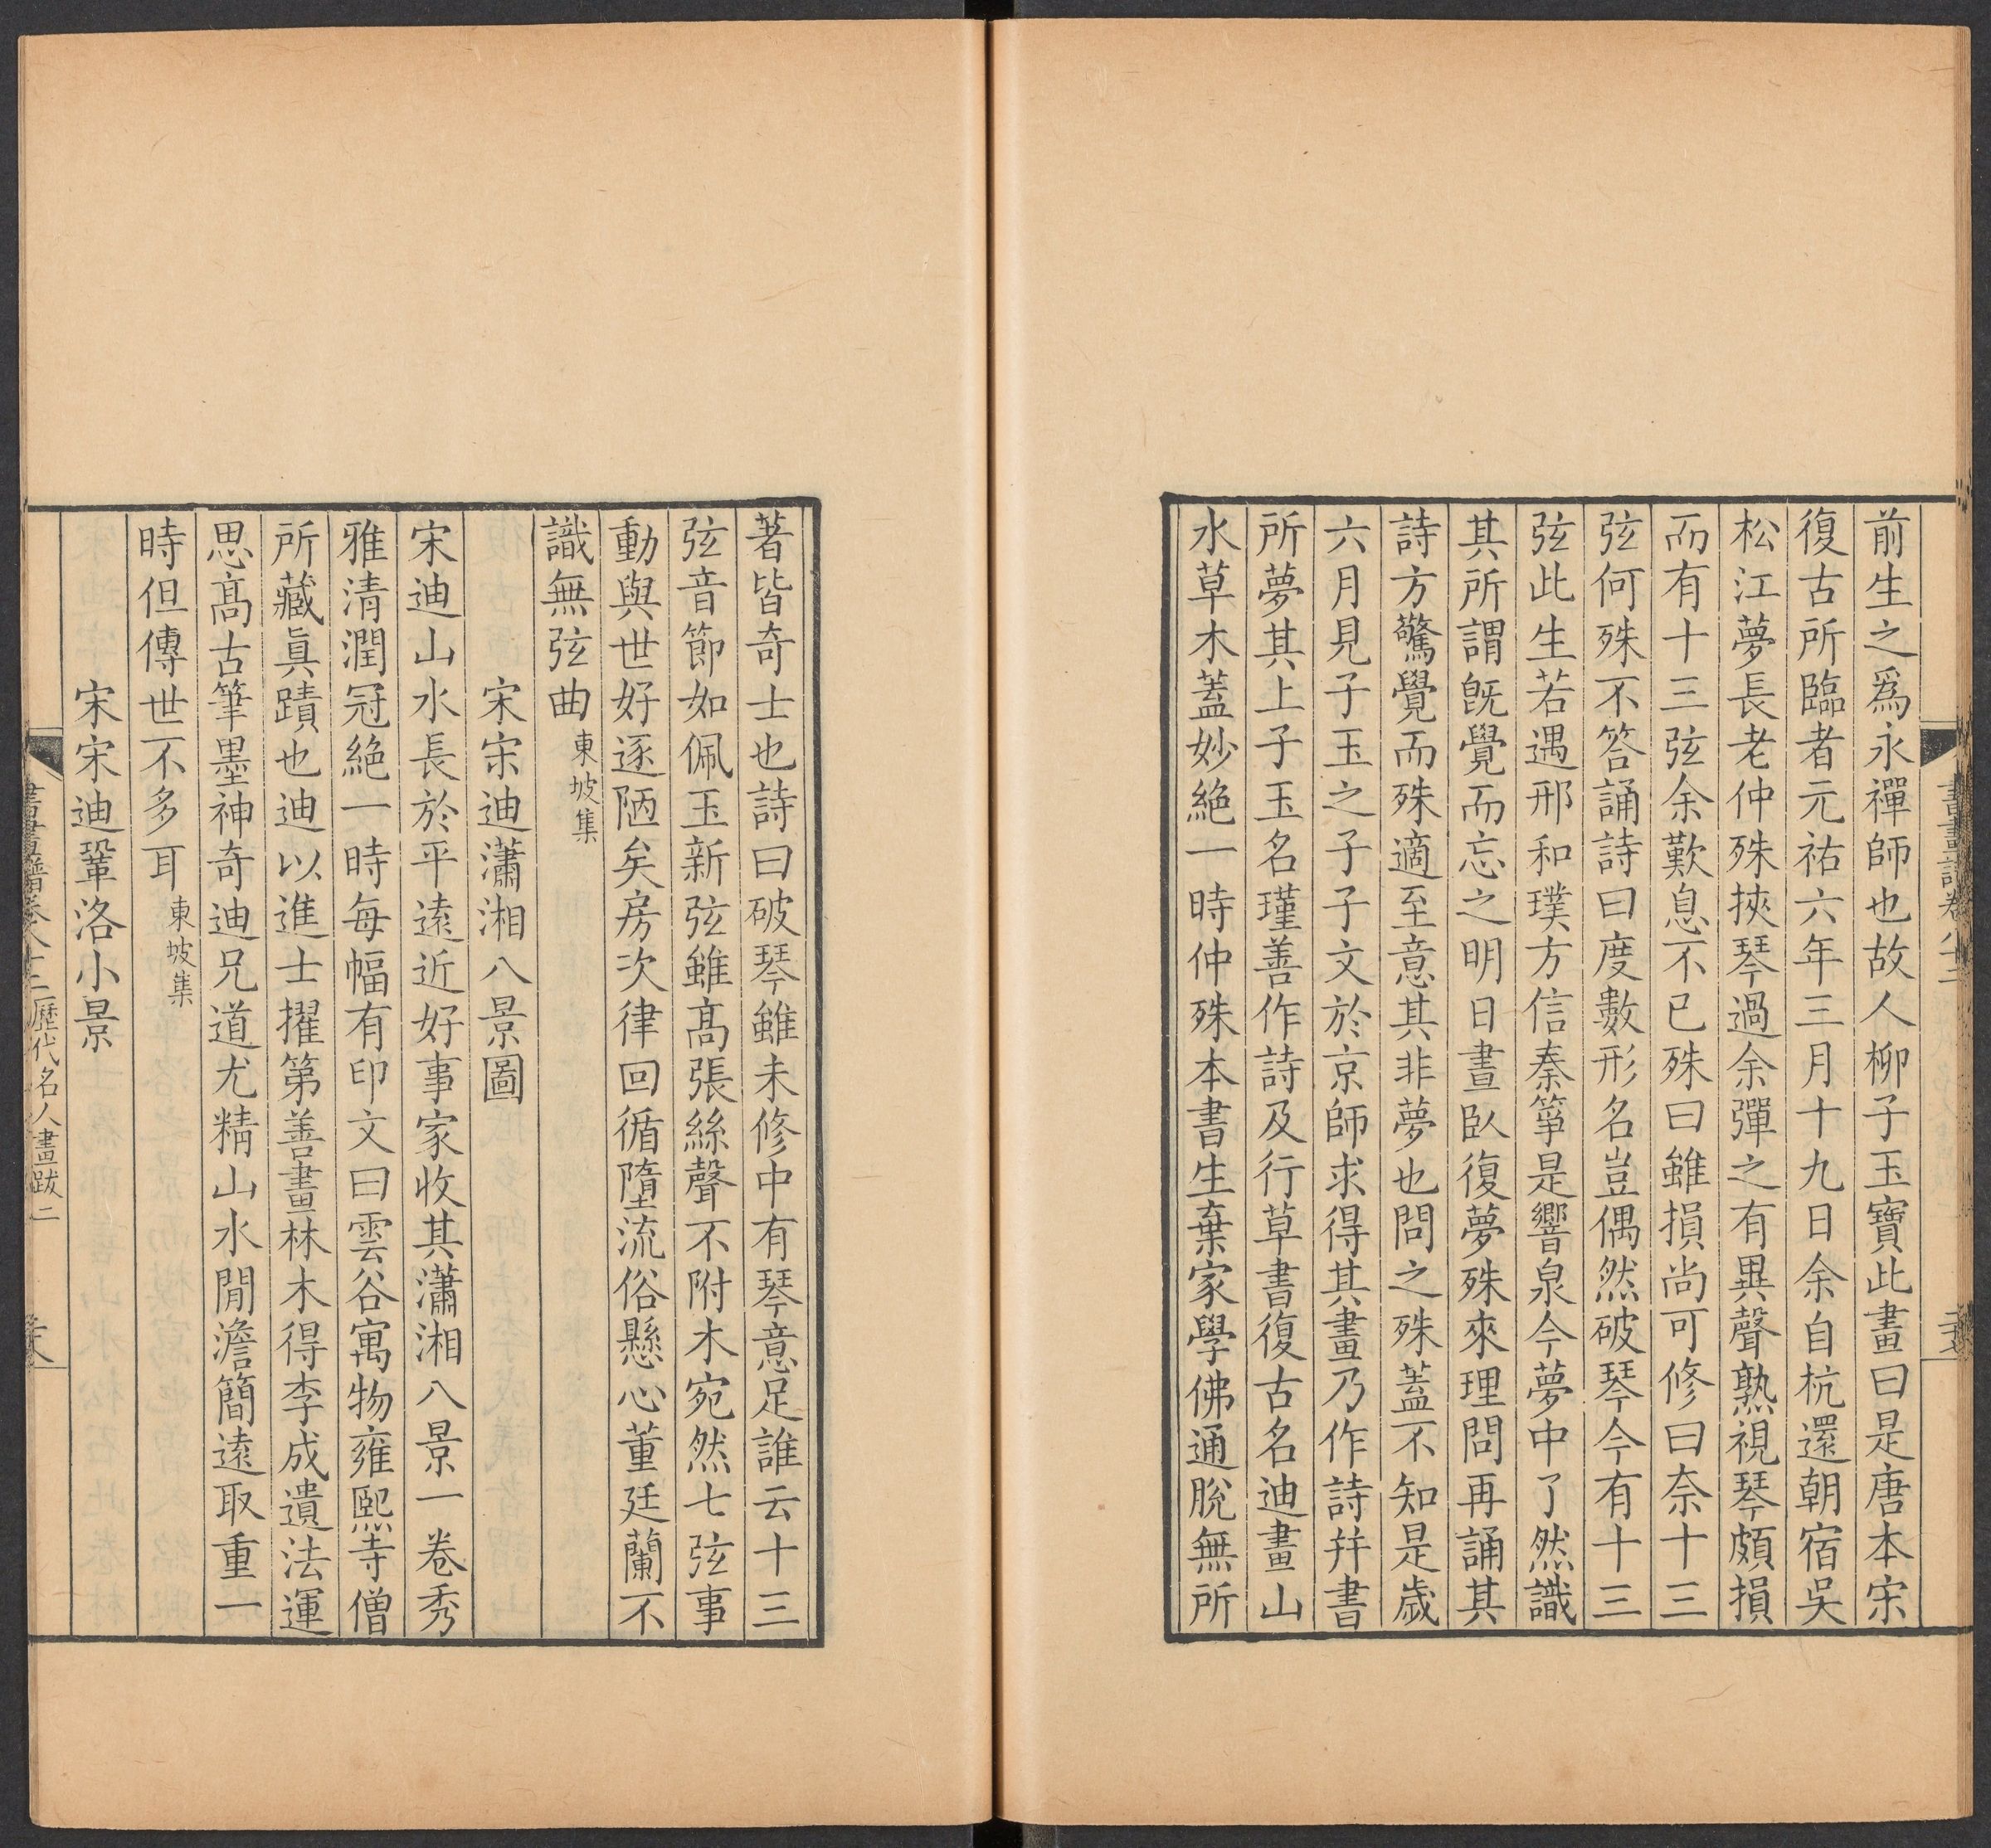 前生之爲永禪師也故人柳子玉寶此畫曰是唐本宋
復古所臨者元祐六年三月十九日余自杭還朝宿吳
松江夢長老仲殊挾琴過余彈之有異聲熟視琴頗損
而有十三弦余歎息不已殊曰雖損尚可修曰奈十三
弦何殊不答誦詩曰度數形名豈偶然破琴今有十三
弦此生若遇邢和璞方信秦箏是響泉今夢中了然識
其所謂旣覺而忘之明日晝臥復夢殊來理問再誦其
詩方驚覺而殊適至意其非夢也問之殊蓋不知是歲
六月見子玉之子子文於京師求得其畫乃作詩幷書
所夢其上子玉名瑾善作詩及行草書復古名迪畫山
水草木蓋妙絕一時仲殊本書生棄家學佛通脫無所
著皆奇士也詩曰破琴雖未修中有琴意足誰云十三
弦音節如佩玉新弦雖高張絲聲不附木宛然七弦事
動與世好逐陋矣房次律回循墮流俗懸心董廷蘭不
識無弦曲東坡集
宋宋迪瀟湘八景圖
宋迪山水長於平遠近好事家收其瀟湘八景一卷秀
雅清潤冠絕一時每幅有印文曰雲谷寓物雍熙寺僧
所藏眞蹟也迪以進士擢第善畫林木得李成遺法運
思高古筆墨神奇迪兄道尤精山水閒澹簡遠取重一
時但傳世不多耳東坡集
宋宋迪鞏洛小景
書畫譜卷八十二歷代名人畫跋二